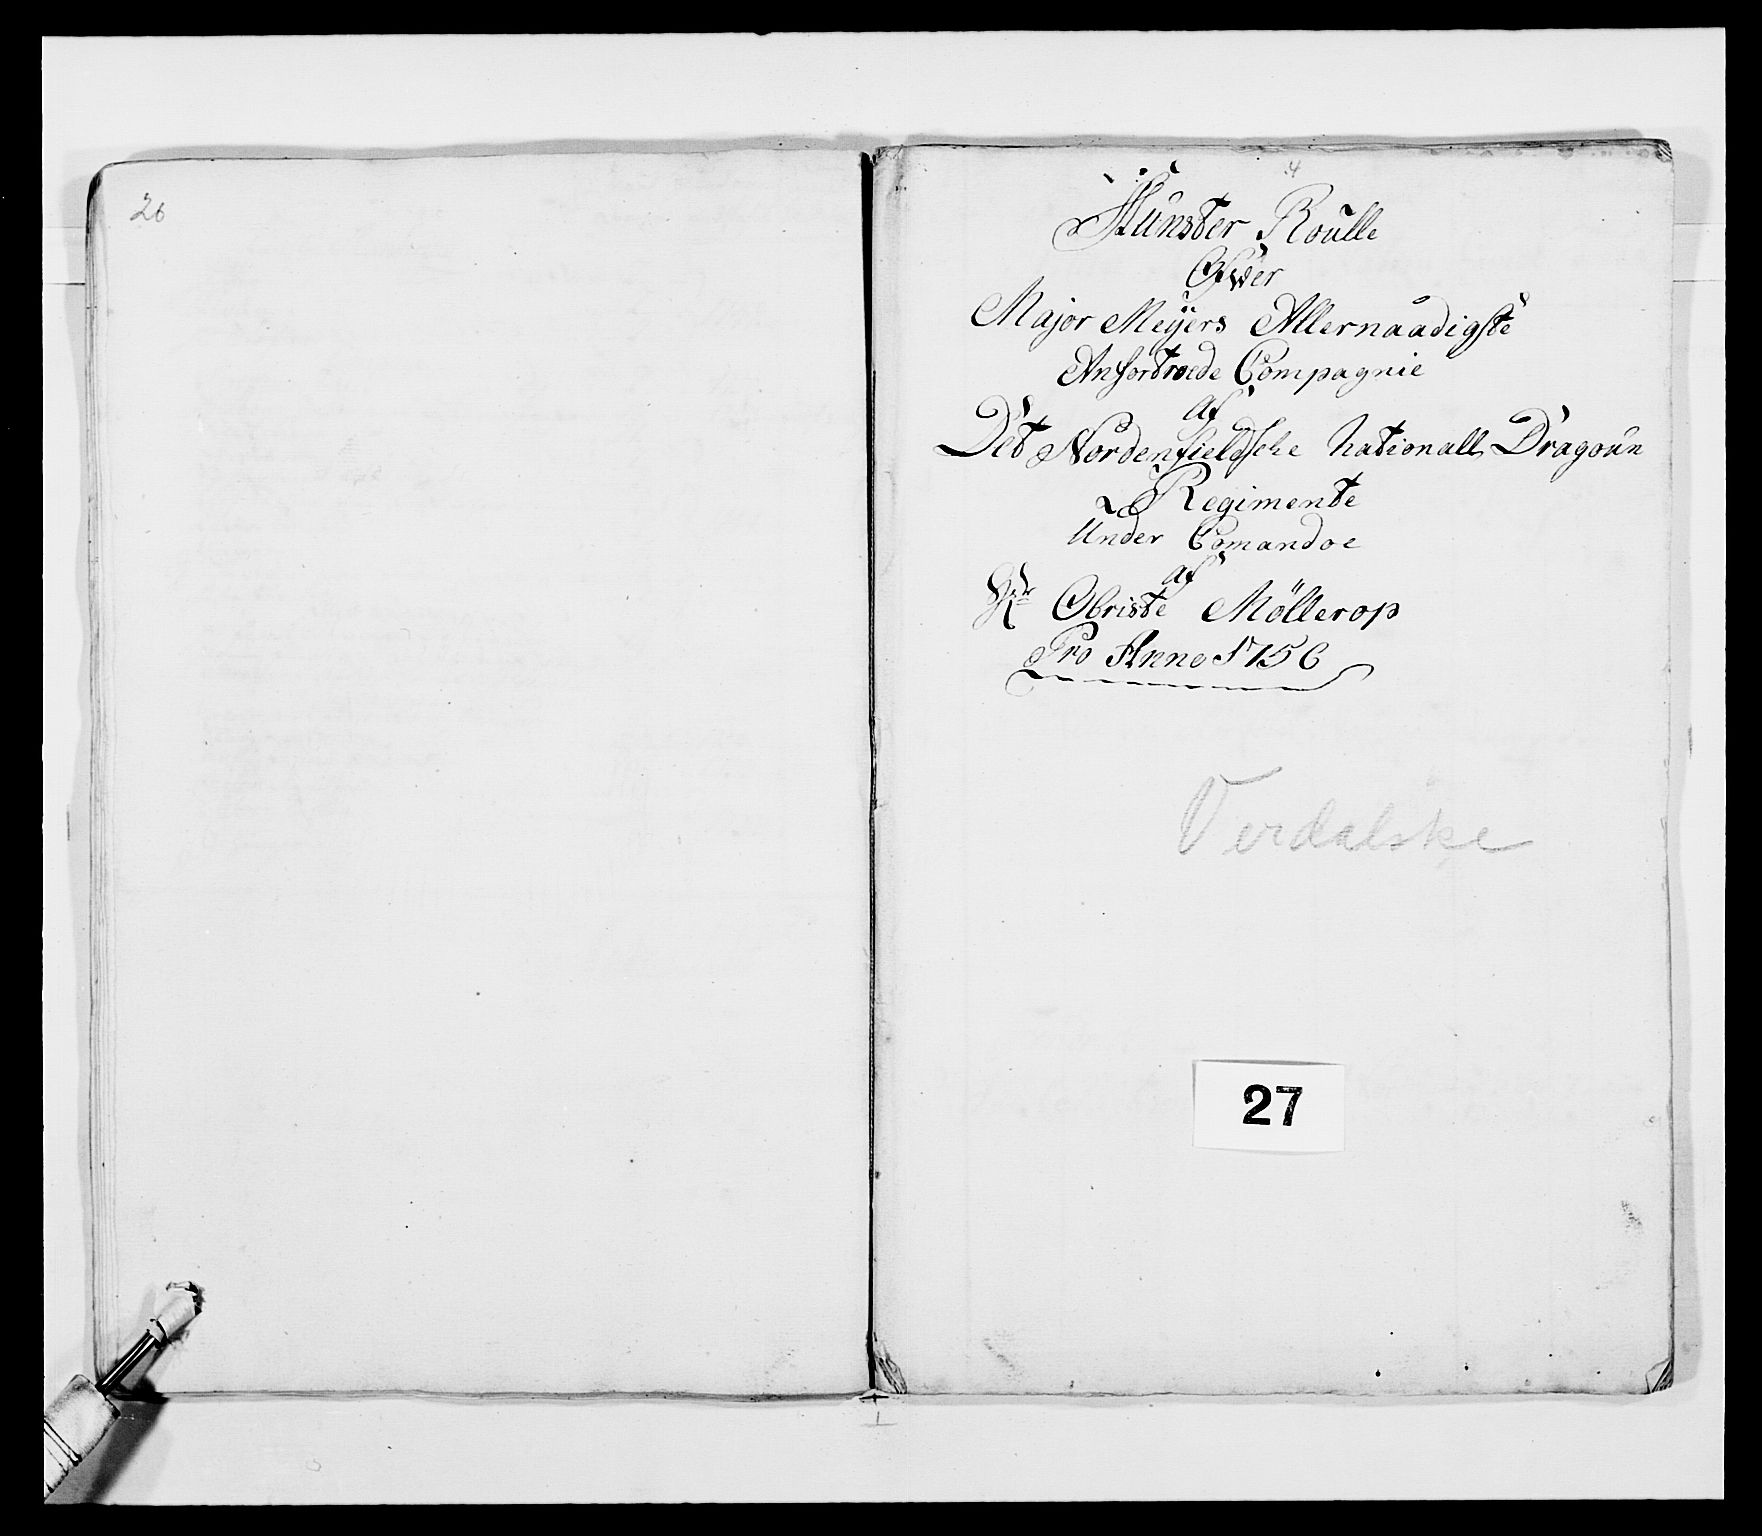 26
4
Münster Roulle
Ofwer
Major Meÿers Allernaadigste
Anfortroede Compagnie
Af
Det Nordenfieldsche Nationall Dragoun
Regimente
Under Comandoe
af
Hr Obriste Möllerop
Pro Anno 1756
Verdalske
27